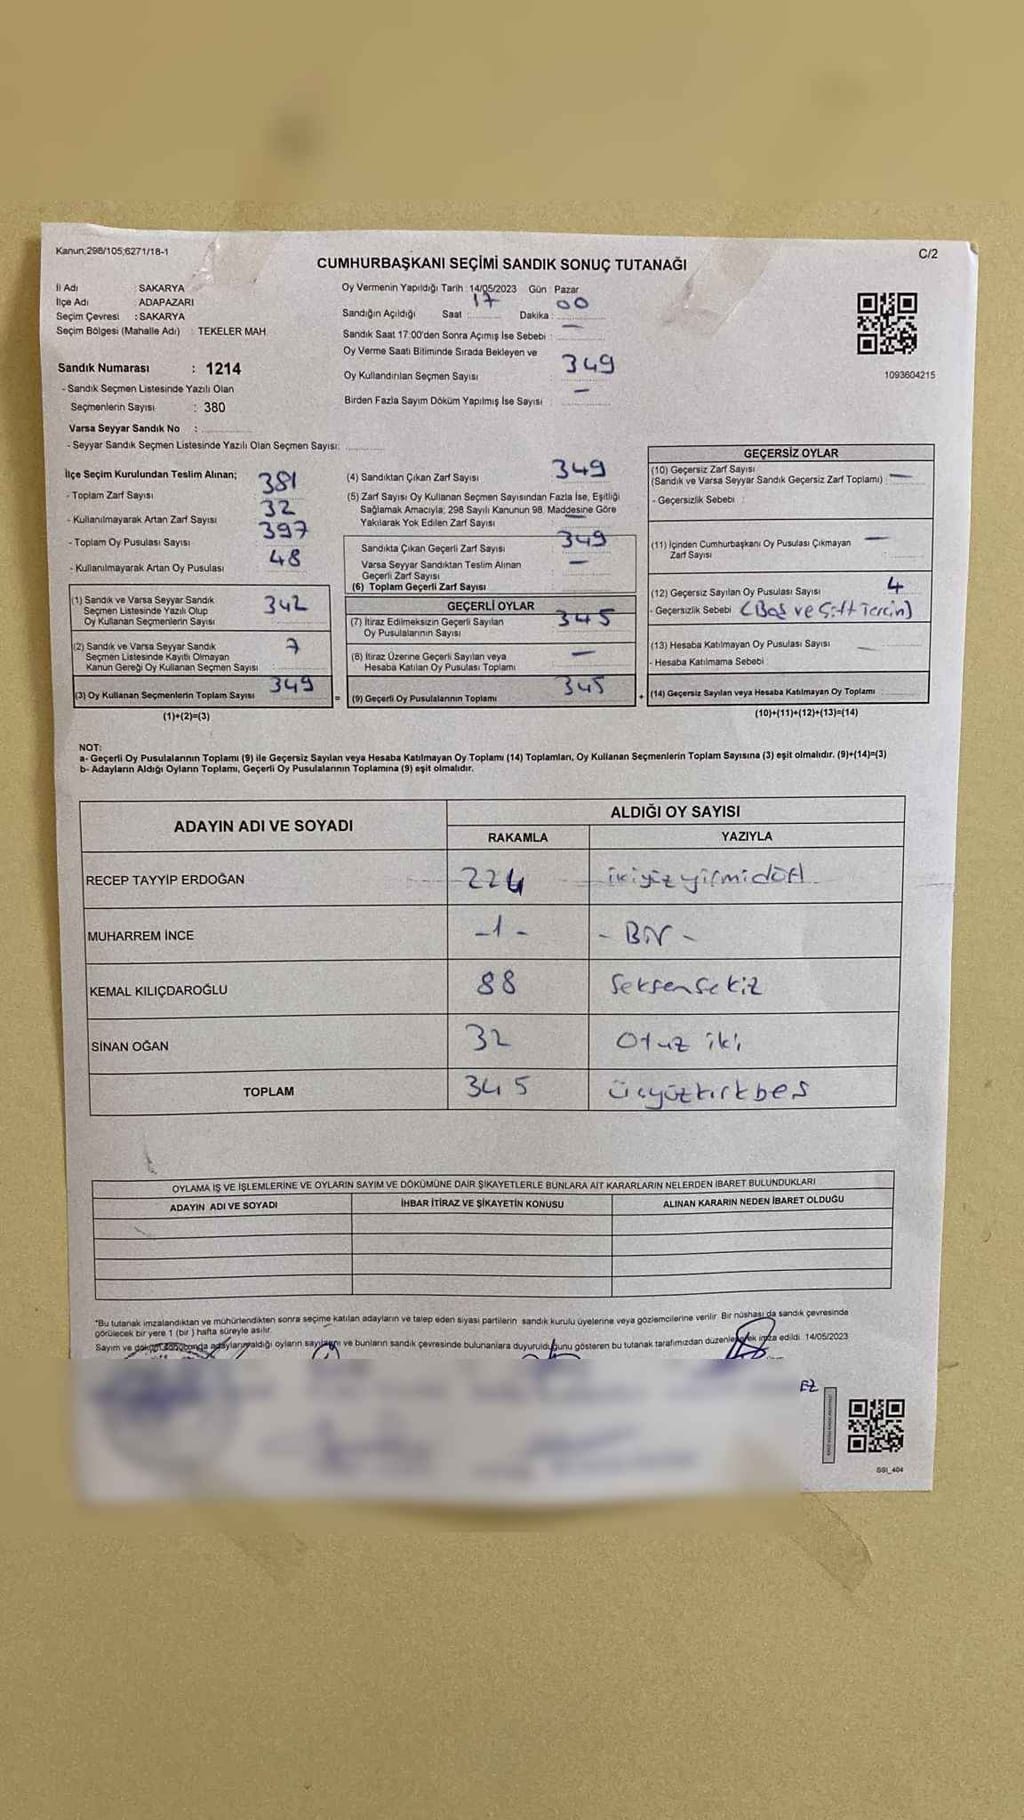 Kanun;298/105;6271/18-1
C/2
CUMHURBAŞKANI SEÇİMİ SANDIK SONUÇ TUTANAĞI
İl Adı : SAKARYA
İlçe Adı : ADAPAZARI
Seçim Çevresi : SAKARYA
Seçim Bölgesi (Mahalle Adı) : TEKELER MAH.
Sandık Numarası : 1214
- Sandık Seçmen Listesinde Yazılı Olan
Seçmenlerin Sayısı : 380
Varsa Seyyar Sandık No :
- Seyyar Sandık Seçmen Listesinde Yazılı Olan Seçmen Sayısı:
Oy Vermenin Yapıldığı Tarih : 14/05/2023 Gün : Pazar
Sandığın Açıldığı Saat : 17 Dakika : 00
Sandık Saat 17:00'den Sonra Açımış İse Sebebi : —
Oy Verme Saati Bitiminde Sırada Bekleyen ve
Oy Kullandırılan Seçmen Sayısı 349
Birden Fazla Sayım Döküm Yapılmış İse Sayısı —
1093604215
İlçe Seçim Kurulundan Teslim Alınan;
- Toplam Zarf Sayısı 381
- Kullanılmayarak Artan Zarf Sayısı 32
- Toplam Oy Pusulası Sayısı 397
- Kullanılmayarak Artan Oy Pusulası 48
(1) Sandık ve Varsa Seyyar Sandık
Seçmen Listesinde Yazılı Olup
Oy Kullanan Seçmenlerin Sayısı 342
(2) Sandık ve Varsa Seyyar Sandık
Seçmen Listesinde Kayıtlı Olmayan
Kanun Gereği Oy Kullanan Seçmen Sayısı 7
(3) Oy Kullanan Seçmenlerin Toplam Sayısı 349
(1)+(2)=(3)
(4) Sandıktan Çıkan Zarf Sayısı 349
(5) Zarf Sayısı Oy Kullanan Seçmen Sayısından Fazla İse, Eşitliği
Sağlamak Amacıyla; 298 Sayılı Kanunun 98. Maddesine Göre
Yakılarak Yok Edilen Zarf Sayısı —
Sandıkta Çıkan Geçerli Zarf Sayısı 349
Varsa Seyyar Sandıktan Teslim Alınan
Geçerli Zarf Sayısı —
(6) Toplam Geçerli Zarf Sayısı
GEÇERLİ OYLAR
(7) İtiraz Edilmeksizin Geçerli Sayılan
Oy Pusulalarının Sayısı 345
(8) İtiraz Üzerine Geçerli Sayılan veya
Hesaba Katılan Oy Pusulası Toplamı —
= (9) Geçerli Oy Pusulalarının Toplamı 345
GEÇERSİZ OYLAR
(10) Geçersiz Zarf Sayısı
(Sandık ve Varsa Seyyar Sandık Geçersiz Zarf Toplamı) : —
- Geçersizlik Sebebi :
(11) İçinden Cumhurbaşkanı Oy Pusulası Çıkmayan
Zarf Sayısı : —
(12) Geçersiz Sayılan Oy Pusulası Sayısı 4
- Geçersizlik Sebebi (Boş ve Çift Tercih)
(13) Hesaba Katılmayan Oy Pusulası Sayısı —
- Hesaba Katılmama Sebebi :
+ (14) Geçersiz Sayılan veya Hesaba Katılmayan Oy Toplamı :
(10)+(11)+(12)+(13)=(14)
NOT:
a- Geçerli Oy Pusulalarının Toplamı (9) ile Geçersiz Sayılan veya Hesaba Katılmayan Oy Toplamı (14) Toplamları, Oy Kullanan Seçmenlerin Toplam Sayısına (3) eşit olmalıdır. (9)+(14)=(3)
b- Adayların Aldığı Oyların Toplamı, Geçerli Oy Pusulalarının Toplamına (9) eşit olmalıdır.
ADAYIN ADI VE SOYADI
ALDIĞI OY SAYISI
RAKAMLA YAZIYLA
RECEP TAYYİP ERDOĞAN 224 ikiyüzyirmidört
MUHARREM İNCE -1- - Bir -
KEMAL KILIÇDAROĞLU 88 Seksensekiz
SİNAN OĞAN 32 Otuz iki
TOPLAM 345 üçyüzkırkbeş
OYLAMA İŞ VE İŞLEMLERİNE VE OYLARIN SAYIM VE DÖKÜMÜNE DAİR ŞİKAYETLERLE BUNLARA AİT KARARLARIN NELERDEN İBARET BULUNDUKLARI
ADAYIN ADI VE SOYADI İHBAR İTİRAZ VE ŞİKAYETİN KONUSU ALINAN KARARIN NEDEN İBARET OLDUĞU
*Bu tutanak imzalandıktan ve mühürlendikten sonra seçime katılan adayların ve talep eden siyasi partilerin sandık kurulu üyelerine veya gözlemcilerine verilir. Bir nüshası da sandık çevresinde
görülecek bir yere 1 (bir) hafta süreyle asılır.
Sayım ve döküm sonucunda adayların aldığı oyların sayılarını ve bunların sandık çevresinde bulunanlara duyurulduğunu gösteren bu tutanak tarafımızdan düzenlenerek imza edildi. 14/05/2023
EZ
SSI_404